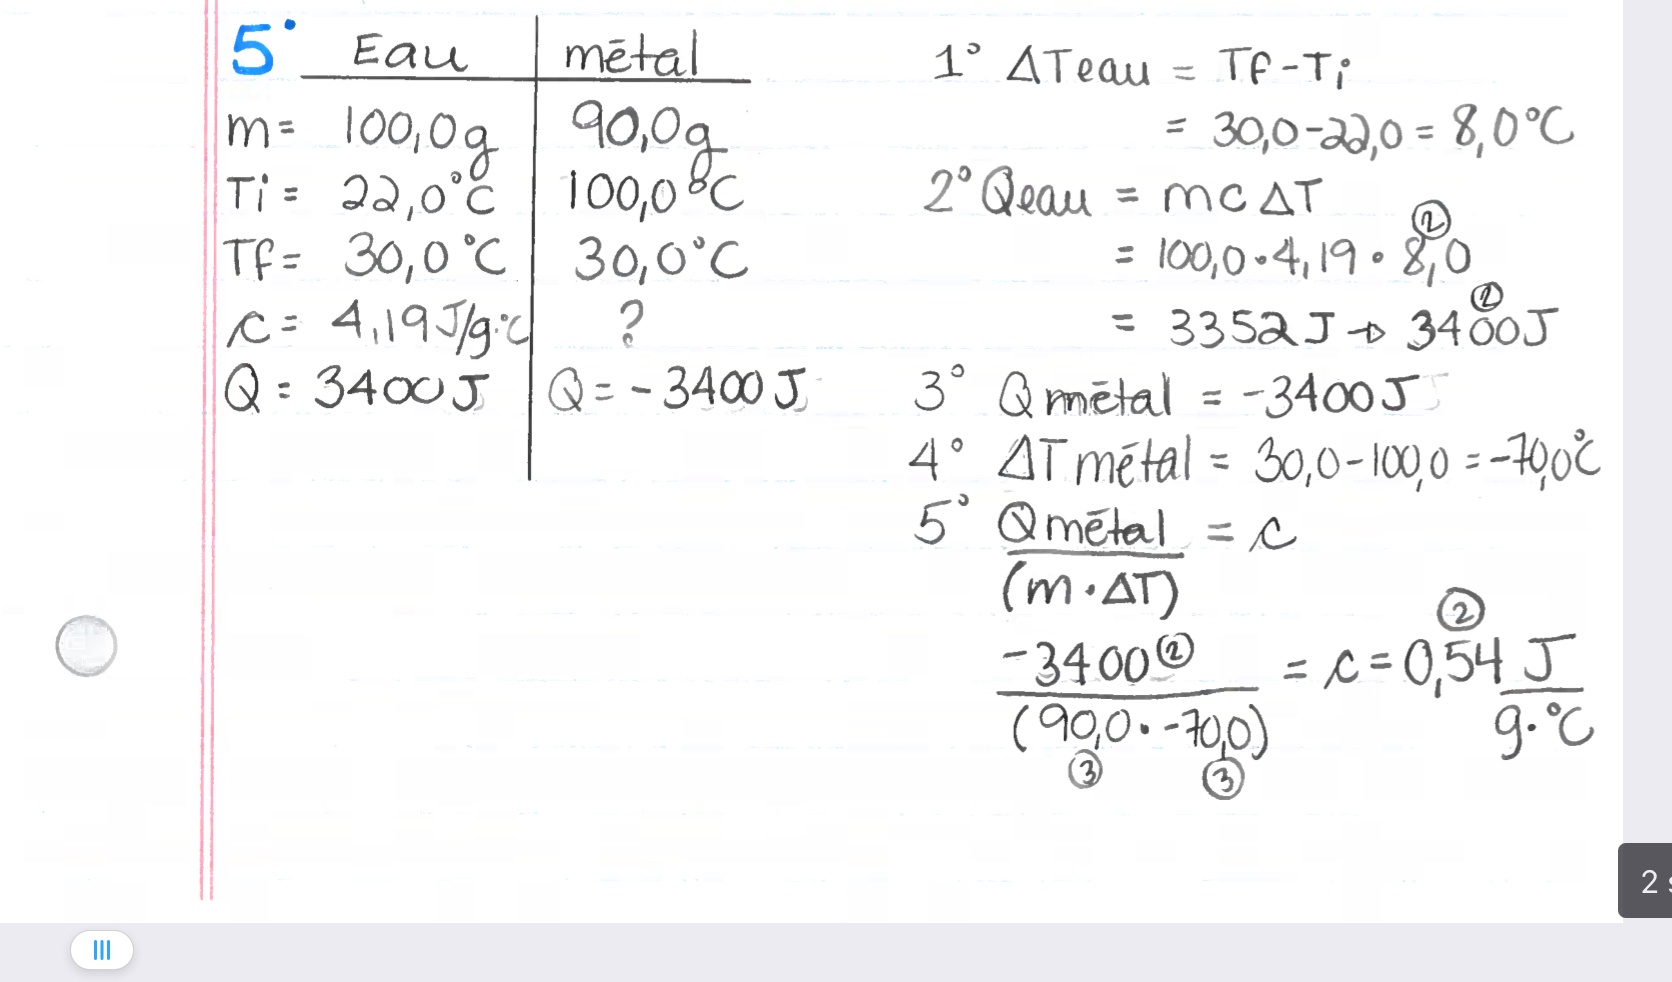 5°
Eau métal
m= 100,0g 90,0g
Ti= 22,0°C 100,0°C
Tf= 30,0°C 30,0°C
c= 4,19 J/g·°C ?
Q= 3400 J Q= -3400 J
1° ΔTeau = Tf-Ti
= 30,0-22,0= 8,0°C
2° Qeau = mcΔT
= 100,0•4,19•8,0 ②
= 3352 J → 3400 J ②
3° Qmétal = -3400 J
4° ΔTmétal = 30,0-100,0 = -70,0°C
5° Qmétal = c
(m•ΔT)
-3400 ② = c = 0,54 ② J
(90,0• -70,0) g•°C
③ ③
2